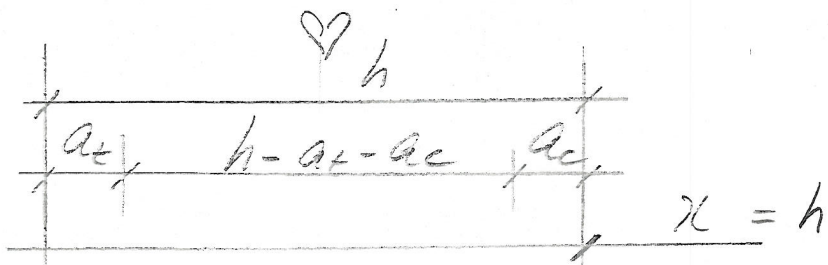 h
a_t h - a_t - a_c a_c
x = h